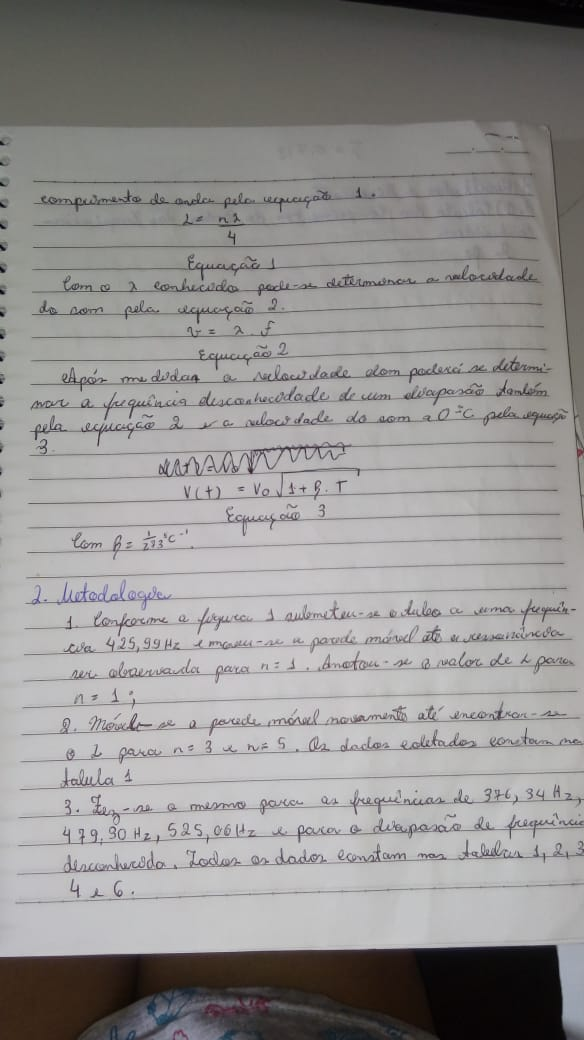 comprimento de onda pela equação 1.
L = nλ
4
Equação 1
Com o λ conhecido pode-se determinar a velocidade
do som pela equação 2.
v = λ . f
Equação 2
Após medidas a velocidade dom poderá se determi-
nar a frequência desconhecidade de um diapasão também
pela equação 2 e a velocidade do som a 0°C pela equação
3.
V(t) = V₀ √1 + β . T
Equação 3
Com β = 1/273 °C⁻¹.
2. Metodologia
1. Conforme a figura 1 submeteu-se o tubo a uma frequên-
cia 425,99 Hz e moveu-se a parede móvel até a ressonância
ser observada para n = 1. Anotou-se o valor de L para
n = 1;
2. Móveu-se a parede móvel novamente até encontrar-se
o L para n = 3 e n = 5. Os dados coletados constam na
tabela 1
3. Fez-se o mesmo para as frequências de 376,34 Hz,
479,30 Hz, 525,06 Hz e para o diapasão de frequência
desconhecida. Todos os dados constam nas tabelas 1, 2, 3
4 e 6.